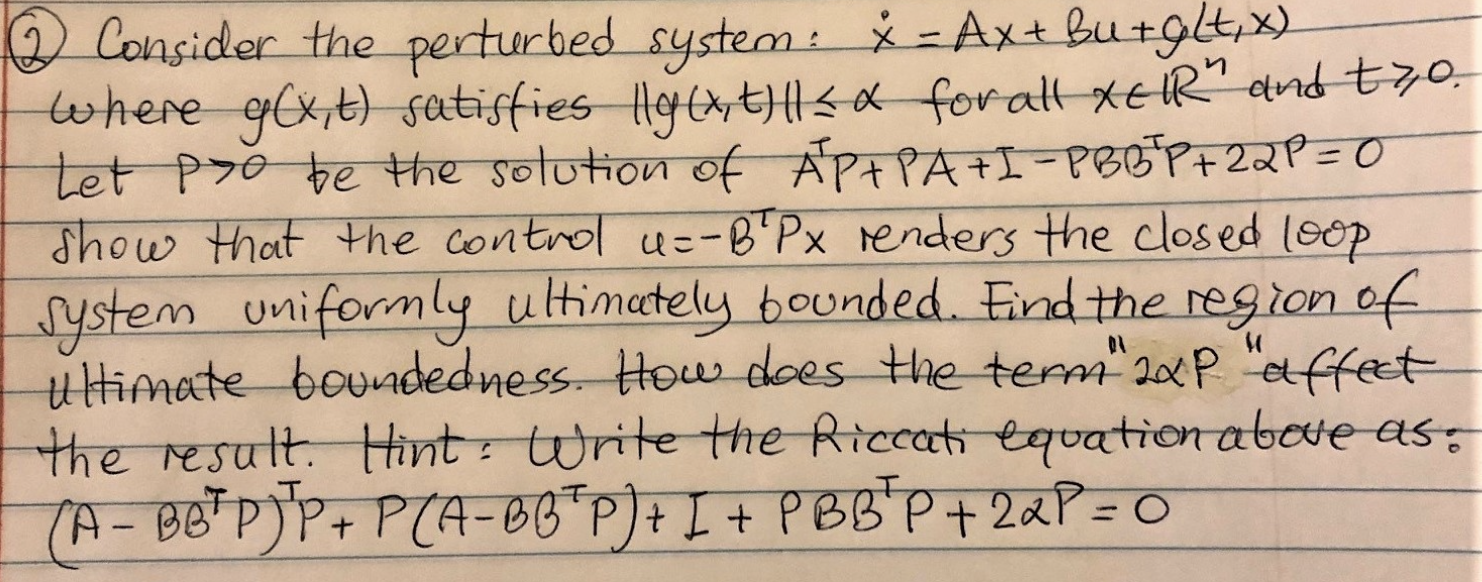 ② Consider the perturbed system: ẋ = Ax + Bu + g(t,x)
where g(x,t) satisfies ||g(x,t)|| ≤ α for all x∈ℝⁿ and t≥0.
Let P>0 be the solution of AᵀP + PA + I - PBBᵀP + 2αP = 0
Show that the control u=-BᵀPx renders the closed loop
system uniformly ultimately bounded. Find the region of
ultimate boundedness. How does the term "2αP" affect
the result. Hint: Write the Riccati equation above as:
(A - BBᵀP)ᵀP + P(A-BBᵀP) + I + PBBᵀP + 2αP = 0